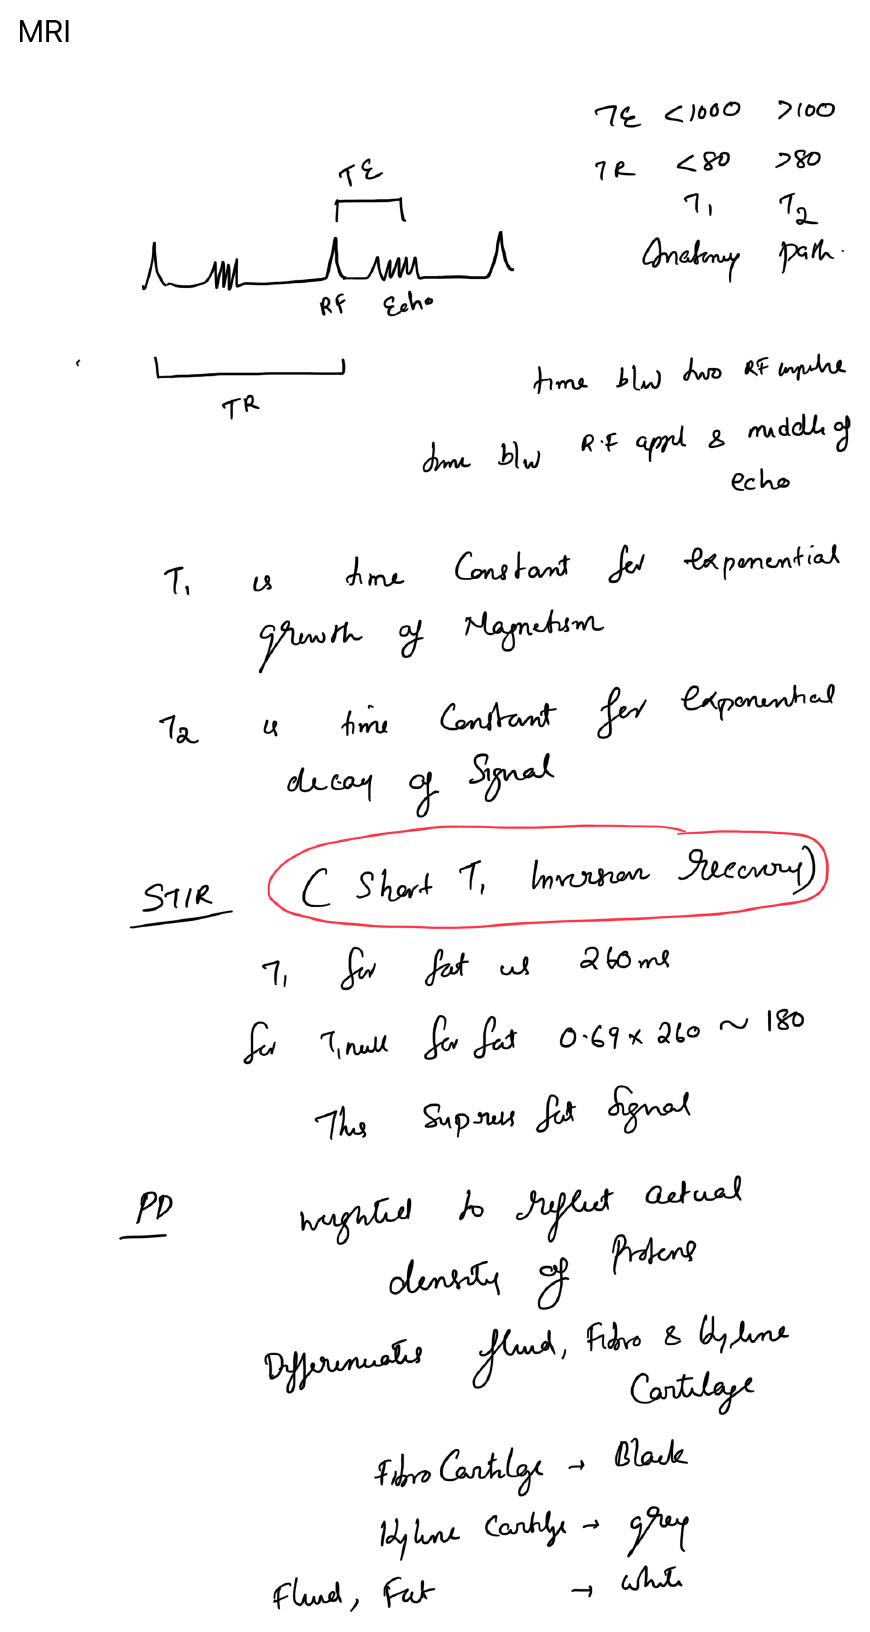 MRI
TE <1000 >100
TR <80 >80
T1 T2
Anatomy path.
TE
RF Echo
TR
time b/w two RF impulse
time b/w R.F appl & middle of
echo
T1 is time Constant for exponential
growth of Magnetism
T2 is time Constant for exponential
decay of Signal
STIR ( Short T1 Inversion recovery)
T1 for fat is 260 ms
for T1 null for fat 0.69 x 260 ~ 180
This Supress fat Signal
PD weighted to reflect actual
density of Protons
Differenciates fluid, Fibro & Hyline
Cartilage
Fibro Cartilge → Black
Hyline Cartilge → grey
Fluid, Fat → white